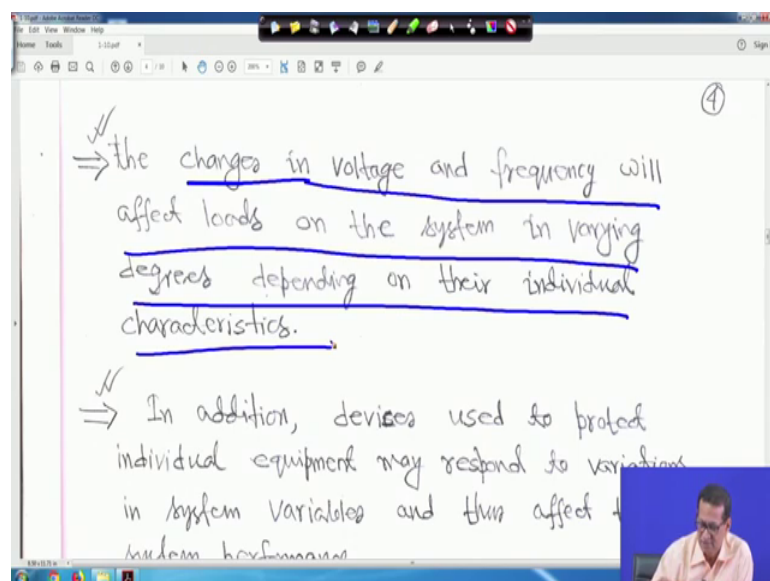 1-10.pdf - Adobe Acrobat Reader DC
File Edit View Window Help
Home Tools 1-10.pdf × Sign
4 / 10
④
⇒ the changes in voltage and frequency will
affect loads on the system in varying
degrees depending on their individual
characteristics.
⇒ In addition, devices used to protect
individual equipment may respond to variations
in system variables and thus affect
system performance